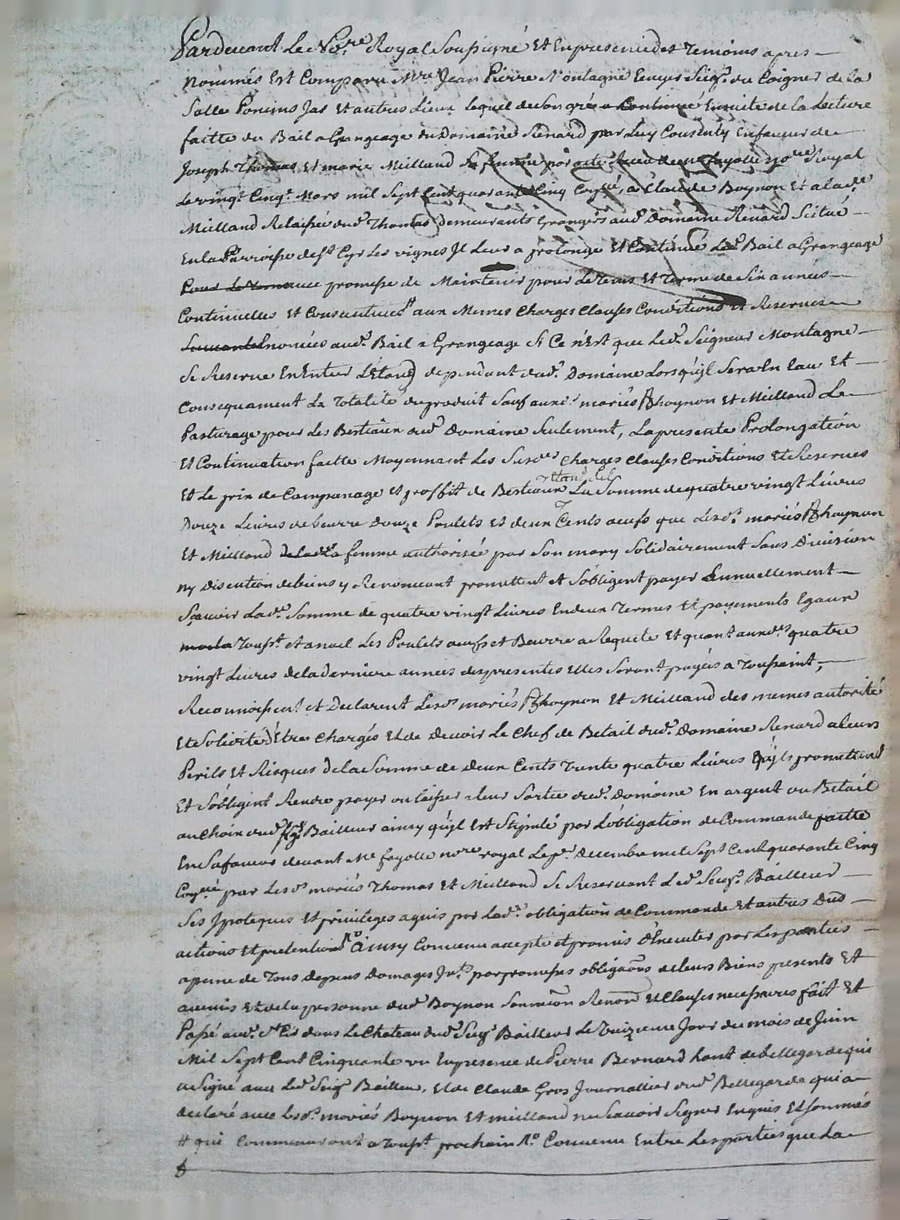 Pardevant Le No.re Royal Soussigné Et En presence des Temoins apres
Nommés Est Comparu M.re Jean Pierre Montagne Ecuyer Seig.r du Coignet de la
Salle Poncins Jas Et autres Lieux Lequel de Son gré a Continué Ensuite de la Lecture
faitte du Bail a Grangeage du Domaine Renard par Luy Consenty En faveur de
Joseph Thomas Et marie Milland Sa femme par acte Fayolle no.re Royal
Le vingt Cinq.e Mars mil Sept Cent quarante Cinq a Claude Boynon Et a lad.e
Milland Relaissée dud. Thomas demeurants Grangers aud. Domaine Renard Scitué
En la Parroisse de S.t Cyr Les vignes Il Leur a prolongé Et Continué Led. Bail a Grangeage
avec promesse de Maintenir pour Le Tems Et Terme de Six années
Continuelles Et Consecutives # aux Memes Charges Clauses Conditions Et Reserves
Enoncées aud. Bail a Grangeage Si Ce n'Est que Led. Seigneur Montagne
Se Reserve En Entier L'Etang dependant dud. Domaine Lorsqu'il Sera En Eau Et
Consequament La Totalité du produit Sauf aux d. mariés Bhoynon Et Milland Le
Pasturage pour Les Bestiaux dud. Domaine Seulement, La presente Prolongation
Et Continuation faitte Moyennant Les Susd.es Charges Clauses Conditions Et Reserves
Et Le prix de Campanage Et proffit de Bestiaux La Somme de quatre vingt Livres
Douze Livres de beurre Douze Poulets Et deux Cents oeufs que Lesd. mariés Bhoynon
Et Milland La femme authorisée par Son mary Solidairement Sans Division
ny Discution de biens y Renonceant promettent Et S'obligent payer Annuellement
Scavoir Lad. Somme de quatre vingt Livres En deux Termes Et payements Egaux
Touss.t Et Les Poulets oeufs et Beurre a Requete Et quant auxd. quatre
vingt Livres de la derniere année des presentes Elles Seront payés a Toussaint,
Reconnoissent et Declarent Lesd. mariés Bhoynon Et Milland des memes autorité
Et Solidité Etre Chargés Et de Devoir Le Chef de Betail dud. Domaine Renard a leurs
Perils Et Risques de la Somme de Deux Cents Trente quatre Livres qu'ils promettent
Et S'obligent Rendre payer ou laisser a leur Sortie dud. Domaine En argent ou Betail
au Choix dud. Sg.r Bailleur ainsy qu'il Est Stipulé par L'obligation de Commande faitte
En Sa faveur devant M.e fayolle no.re royal Le Decembre mil Sept Cent quarante Cinq
par Lesd. mariés Thomas Et Milland Se Reservant Led. Seig.r Bailleur
Ses Ipoteques Et privileges aquis par Lad. obligation de Commande Et autres Dus
actions Et pretentions Ainsy Convenu accepté et promis d'Executer par Les parties
a peine de Tous depens Domages Int. par promesses obligaôns de leurs Biens presents Et
avenir Et de la personne dud. Boynon Soumiôn Renôn Et Clauses necessaires fait Et
Passé aud. S.t Cir dans Le Chateau dud. Seig.r Bailleur Le Jour du mois de Juin
Mil Sept Cent Cinquante un En presence de Pierre Bernard de bellegarde qui
a Signé avec Led. Seig.r Bailleur, Et de Claude Gros Journallier dud. Bellegarde qui a
declaré avec Lesd. mariés Boynon Et milland ne Scavoir Signer Enquis Et Sommés
# qui Commenceront a Touss.t prochain Convenu Entre Les parties que La